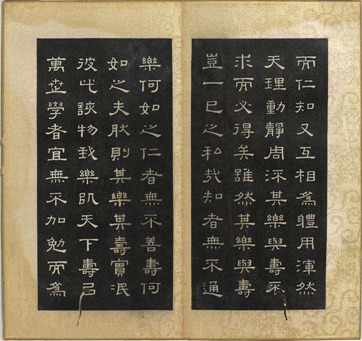 而仁知又互相為體用渾然
天理動靜周流其樂與壽不
求而必得矣雖然其樂與壽
豈一己之私哉知者無不通
樂何如之仁者無不善壽何
如之夫然則其樂其壽實泯
彼此該物我樂以天下壽以
萬世學者宜無不加勉而為